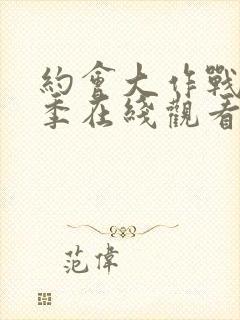 約會大作戰
季在綫觀看
范偉